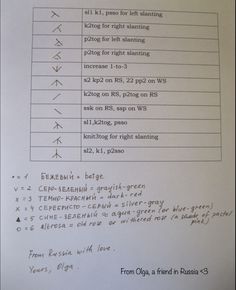 sl1 k1, psso for left slanting
k2tog for right slanting
p2tog for left slanting
p2tog for right slanting
increase 1-to-3
s2 kp2 on RS, 22 pp2 on WS
k2tog on RS, p2tog on RS
ssk on RS, ssp on WS
sl1,k2tog, psso
knit3tog for right slanting
sl2, k1, p2sso
• = 1 БЕЖЕВЫЙ = beige
v = 2 СЕРО-ЗЕЛЕНЫЙ = grayish-green
x = 3 ТЕМНО-КРАСНЫЙ = dark-red
x = 4 СЕРЕБРИСТО-СЕРЫЙ = silver-gray
▲ = 5 СИНЕ-ЗЕЛЕНЫЙ = aqua-green (or blue-green)
o = 6 Altrosa = old rose or withered rose (a shade of pastel
pink)
From Russia with love.
Yours, Olga.
From Olga, a friend in Russia <3